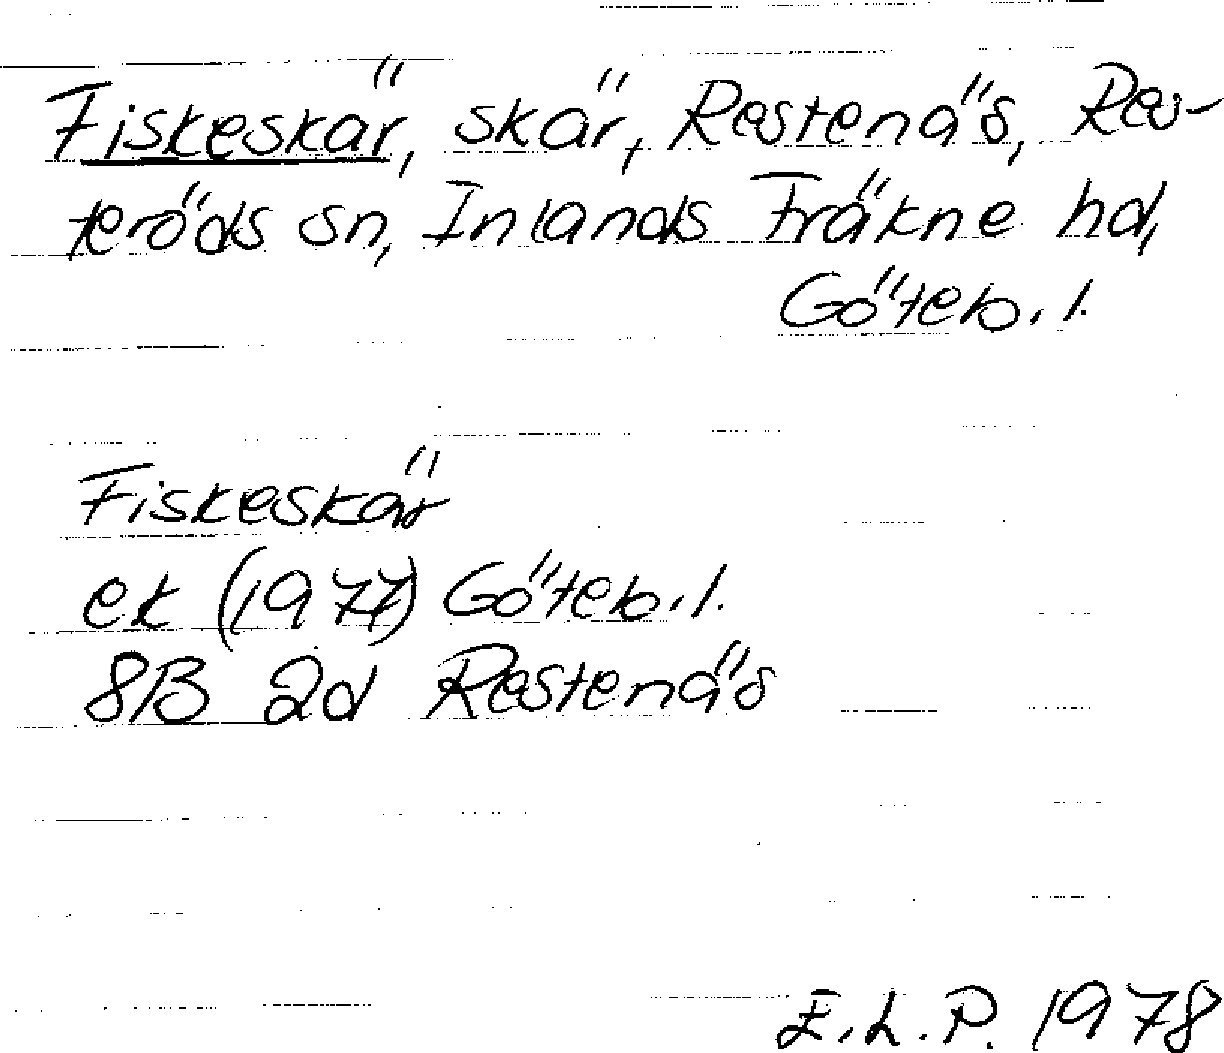 Fiskeskär, skär, Restenäs, Res-
teröds sn, Inlands Fräkne hd,
Göteb. l.
Fiskeskär
ek (1977) Göteb. l.
8B 2d Restenäs
E.L.P. 1978